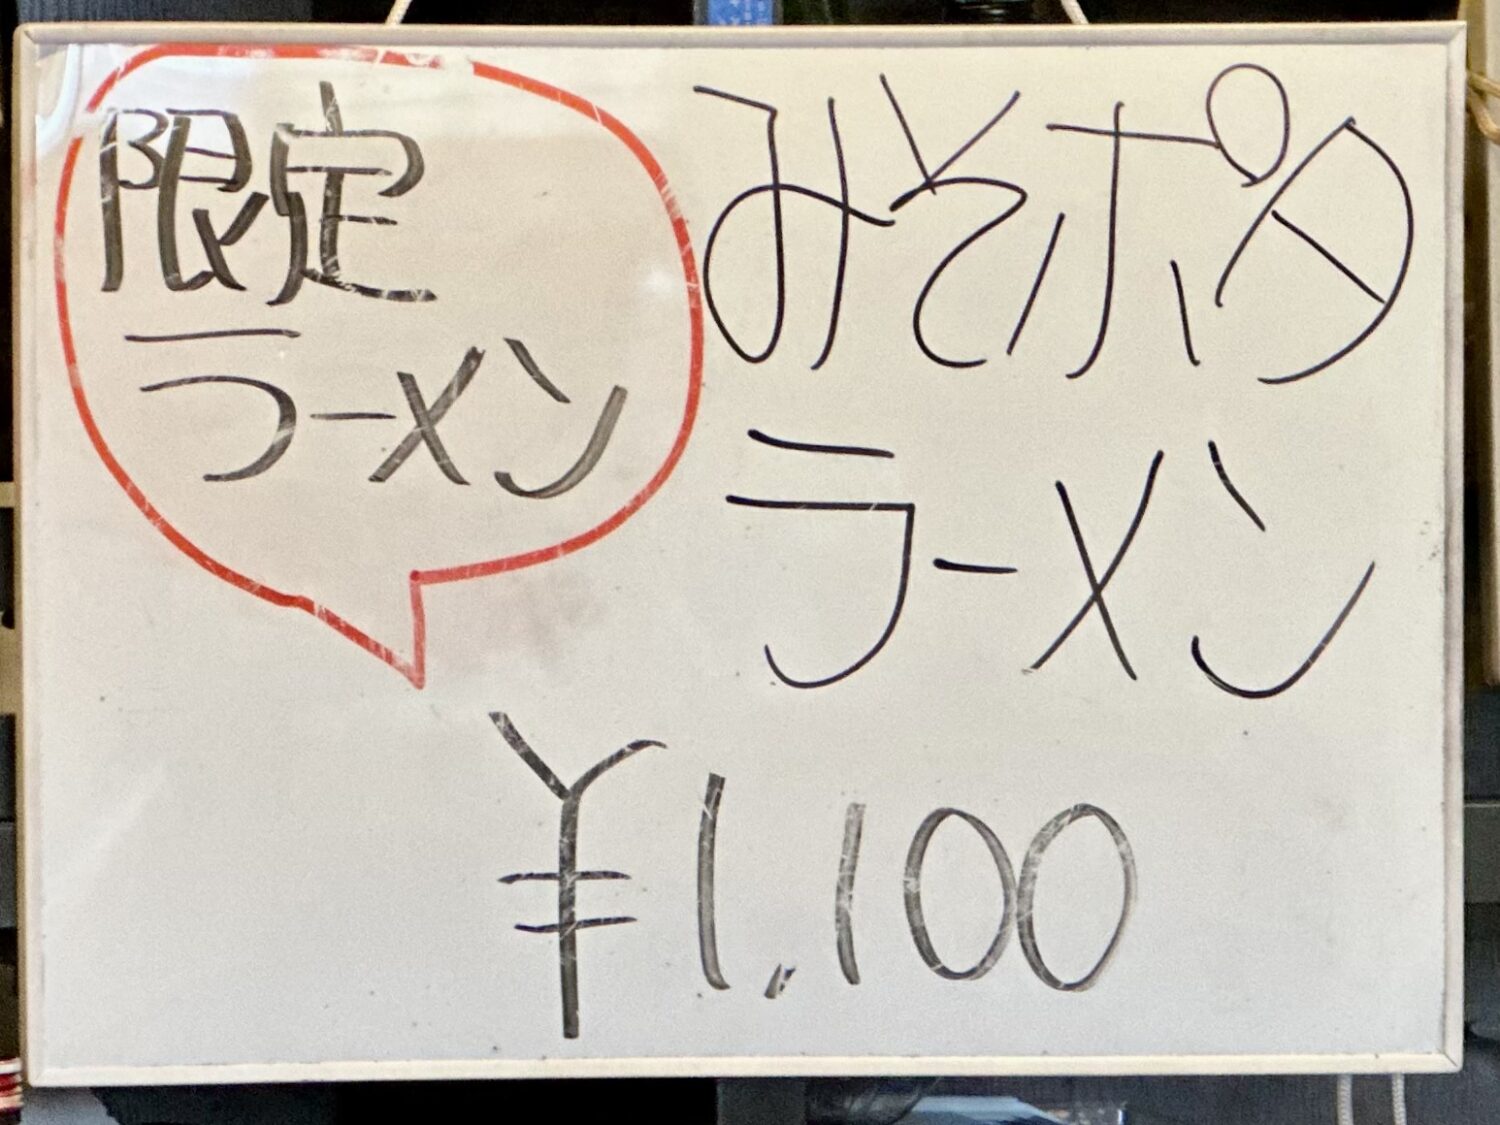 限定
ラーメン
みそポタ
ラーメン
¥1,100